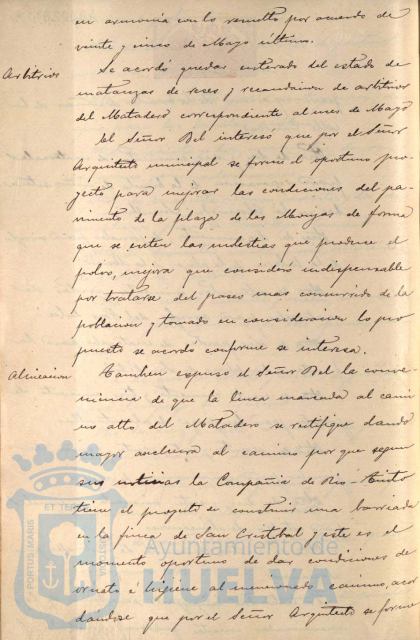 en armonía con lo resuelto por acuerdo de
veinte y cinco de Mayo último.
Arbitrios
Se acordó quedar enterado del estado de
matanzas de reses y recaudacion de arbitrios
del Matadero correspondiente al mes de Mayo
El Señor Bel interesó que por el Señor
Arquitecto municipal se forme el oportuno pro
yecto para mejorar las condiciones del pa
vimento de la plaza de las Monjas de forma
que se eviten las molestias que produce el
polvo, mejora que consideró indispensable
por tratarse del paseo mas concurrido de la
poblacion y tomado en consideracion lo pro
puesto se acordó conforme se interesa.
Alineacion
Tambien expuso el Señor Bel la conve-
niencia de que la linea marcada al cami
no alto del Matadero se rectifique dando
mayor anchura al camino por que segun
sus noticias la Compañia de Rio-Tinto
tiene el proyecto de construir una barriada
en la finca de San Cristobal y este es el
momento oportuno de dar condiciones de
ornato é higiene al mencionado camino, acor
dandose que por el Señor Arquitecto se forme
PORTUS MARIS
ET TERRAE
CUSTODIA
Ayuntamiento de
HUELVA